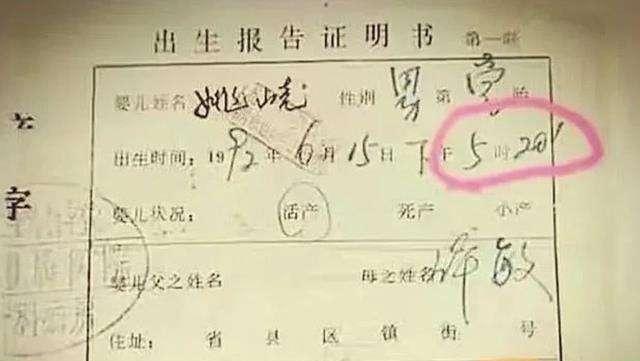 出生报告证明书 第一联
婴儿姓名 姚 性别 男 第 胎
出生时间: 1992年6月15日下午5时20'
字
婴儿状况: 活产 死产 小产
婴儿父之姓名 母之姓名 许敏
住址: 省 县 区 镇 街 号